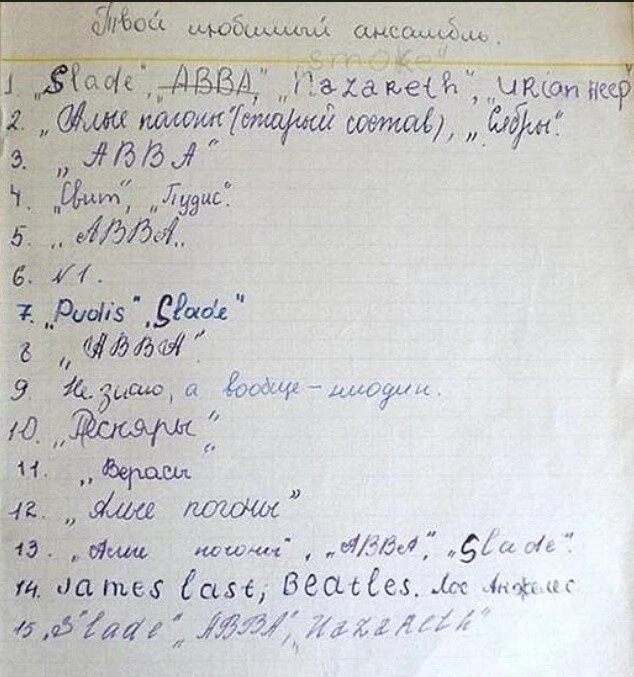 Твой любимый ансамбль.
„Smoke"
1. „Slade", „ABBA", „Nazareth", „URian HEEP"
2. „Алые погоны" (старый состав), „Сябры".
3. „ABBA"
4. „Свит", „Пудис".
5. „ABBA„
6. N1.
7. „Pudis" „Slade"
8 „ABBA".
9 Не знаю, а вообще –
10. „Песняры"
11. „Верасы"
12. „Алые погоны"
13. „Алые погоны", „ABBA", „Slade".
14. James last, Beatles. Лос Анжелес
15 „Slade" „ABBA", „Nazareth"